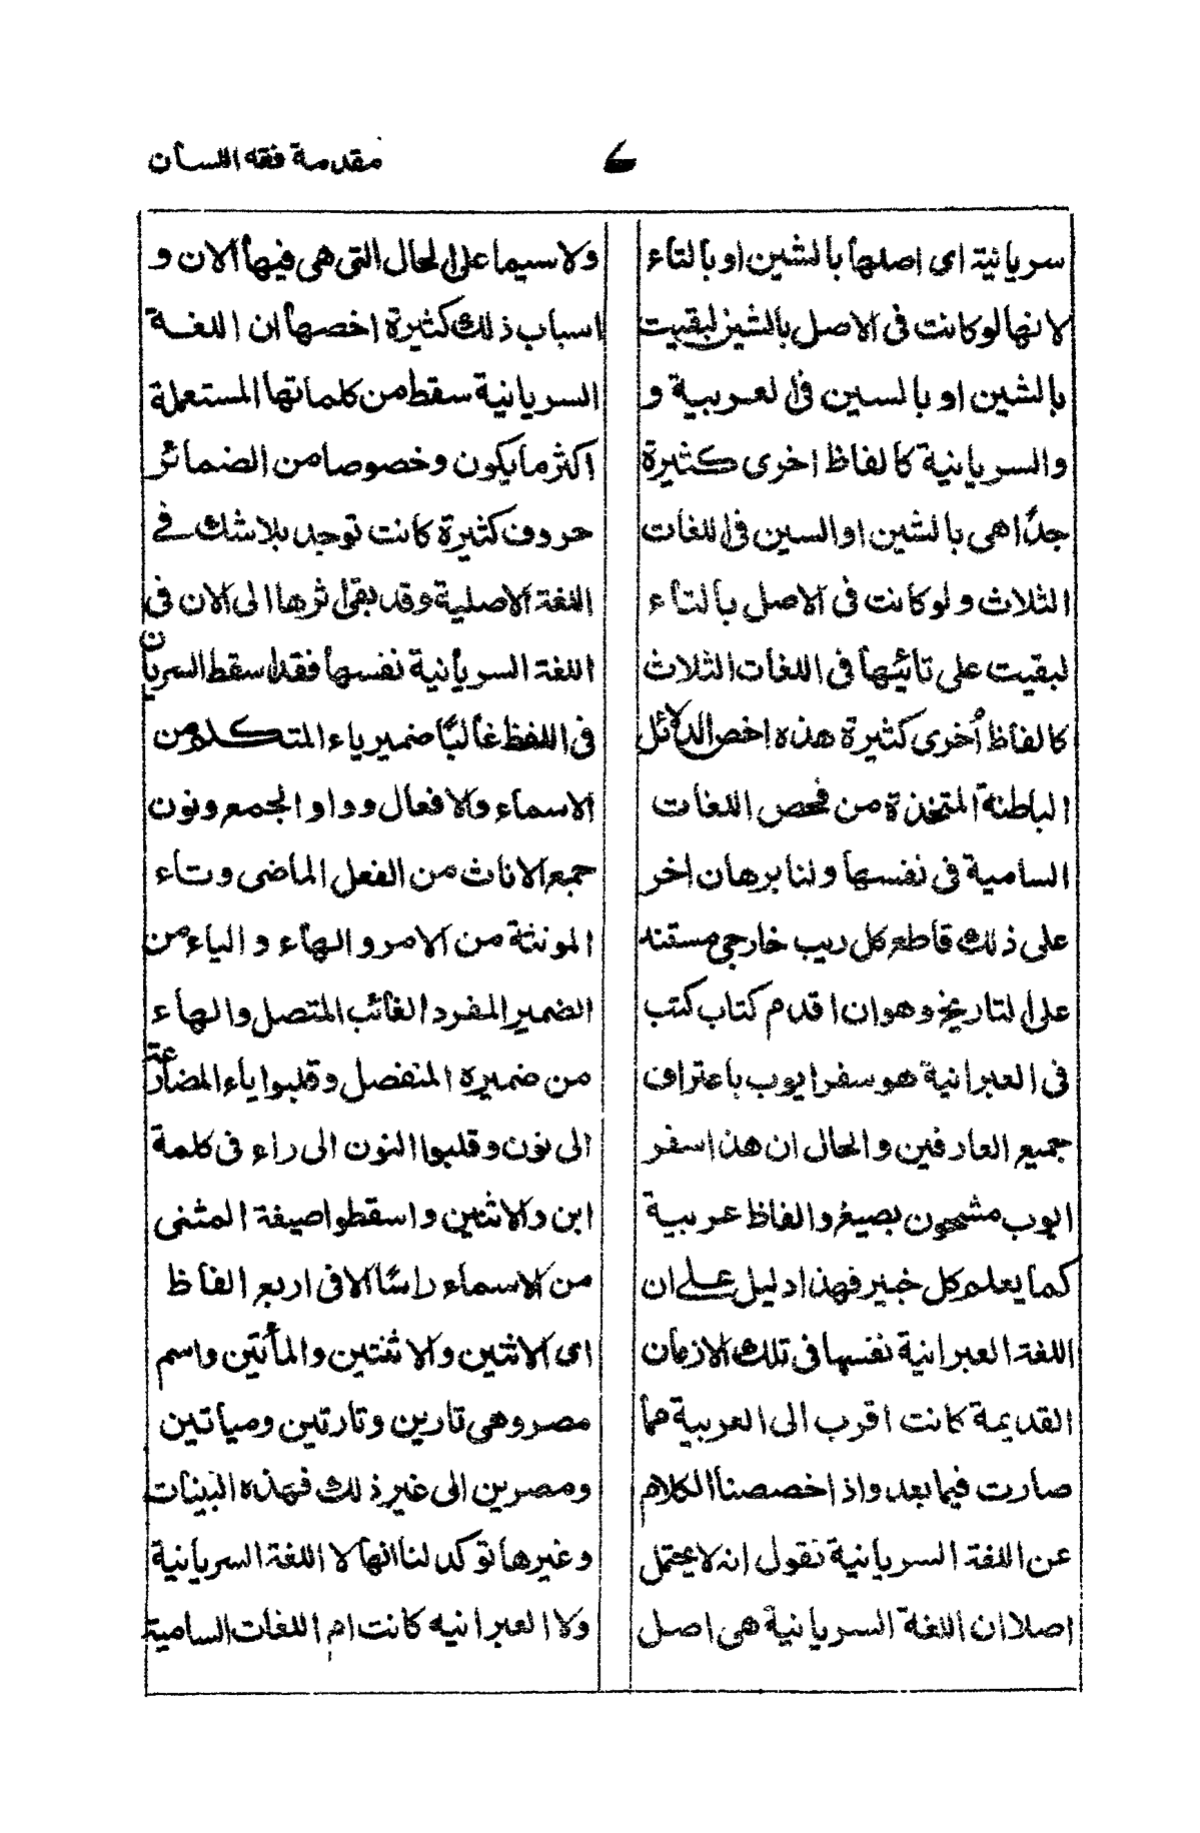 مقدمة فقه اللسان
سريانية اى اصلها بالشين او بالتاء
لانها لو كانت فى الاصل بالشين لبقيت
بالشين او بالسين فى العربية و
والسريانية كالفاظ اخرى كثيرة
جدًا هى بالشين او السين فى اللغات
الثلاث ولو كانت فى الاصل بالتاء
لبقيت على تائيتها فى اللغات الثلاث
كالفاظ أخرى كثيرة هذه اخص الدلائل
الباطنة المتخذة من فحص اللغات
السامية فى نفسها ولنا برهان اخر
على ذلك قاطع كل ريب خارجى مستند
على التاريخ وهو ان اقدم كتاب كتب
فى العبرانية هو سفر ايوب باعتراف
جميع العارفين والحال ان هذا سفر
ايوب مشحون بصيغ والفاظ عربية
كما يعلم كل خبير فهذا دليل على ان
اللغة العبرانية نفسها فى تلك الازمان
القديمة كانت اقرب الى العربية مما
صارت فيما بعد واذ اخصصنا الكلام
عن اللغة السريانية نقول انه لا يحتمل
اصلا ان اللغة السريانية هى اصل
ولا سيما على الحال التى هى فيها الان و
اسباب ذلك كثيرة اخصها ان اللغة
السريانية سقط من كلماتها المستعملة
اكثر ما يكون وخصوصا من الضمائر
حروف كثيرة كانت توجد بلا شك فى
اللغة الاصلية وقد بقى اثرها الى الان فى
اللغة السريانية نفسها فقد اسقط السريان
فى اللفظ غالبًا ضمير ياء المتكلم من
الاسماء والافعال وواو الجمع ونون
جمع الاناث من الفعل الماضى وتاء
المونثة من الامر والهاء و الياء من
الضمير المفرد الغائب المتصل والهاء
من ضميره المنفصل وقلبوا ياء المضارعة
الى نون وقلبوا النون الى راء فى كلمة
ابن والاثنين واسقطوا صيغة المثنى
من الاسماء راسًا الا فى اربع الفاظ
اى الاثنين والاثنتين والمأتين واسم
مصر وهى تارين وتارتين ومياتين
ومصرين الى غير ذلك فهذه البينات
وغيرها توكد لنا انها لا اللغة السريانية
ولا العبرانيه كانت ام اللغات السامية